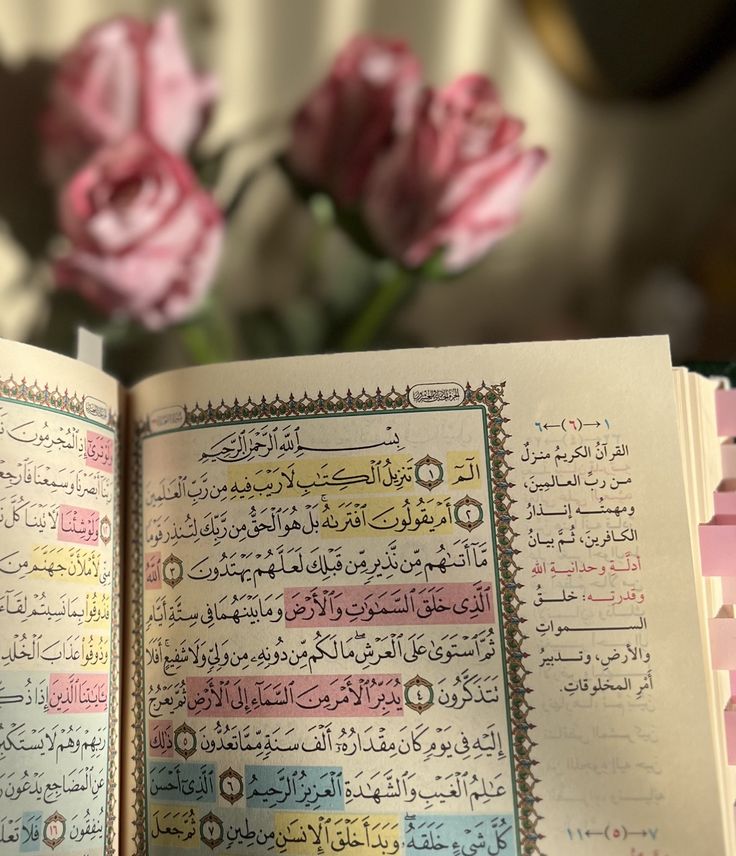 الجزء الحادي والعشرون
بِسْمِ ٱللَّهِ ٱلرَّحْمَٰنِ ٱلرَّحِيمِ
الٓمٓ ١ تَنزِيلُ ٱلْكِتَٰبِ لَا رَيْبَ فِيهِ مِن رَّبِّ ٱلْعَٰلَمِينَ
٢ أَمْ يَقُولُونَ ٱفْتَرَىٰهُ ۚ بَلْ هُوَ ٱلْحَقُّ مِن رَّبِّكَ لِتُنذِرَ قَوْمًا
مَّآ أَتَىٰهُم مِّن نَّذِيرٍ مِّن قَبْلِكَ لَعَلَّهُمْ يَهْتَدُونَ ٣ ٱللَّهُ
ٱلَّذِى خَلَقَ ٱلسَّمَٰوَٰتِ وَٱلْأَرْضَ وَمَا بَيْنَهُمَا فِى سِتَّةِ أَيَّامٍ
ثُمَّ ٱسْتَوَىٰ عَلَى ٱلْعَرْشِ ۖ مَا لَكُم مِّن دُونِهِۦ مِن وَلِىٍّ وَلَا شَفِيعٍ ۚ أَفَلَا
تَتَذَكَّرُونَ ٤ يُدَبِّرُ ٱلْأَمْرَ مِنَ ٱلسَّمَآءِ إِلَى ٱلْأَرْضِ ثُمَّ يَعْرُجُ
إِلَيْهِ فِى يَوْمٍ كَانَ مِقْدَارُهُۥٓ أَلْفَ سَنَةٍ مِّمَّا تَعُدُّونَ ٥ ذَٰلِكَ
عَٰلِمُ ٱلْغَيْبِ وَٱلشَّهَٰدَةِ ٱلْعَزِيزُ ٱلرَّحِيمُ ٦ ٱلَّذِىٓ أَحْسَنَ
كُلَّ شَىْءٍ خَلَقَهُۥ ۖ وَبَدَأَ خَلْقَ ٱلْإِنسَٰنِ مِن طِينٍ ٧ ثُمَّ جَعَلَ
١→(٦)←٦
القرآنُ الكريمُ منزلٌ
من ربِّ العالمينَ،
ومهمتُه إنذارُ
الكافرينَ، ثُمَّ بيانُ
أدلَّةِ وحدانيةِ اللهِ
وقدرتِه: خلقُ
السمواتِ
والأرضِ، وتدبيرُ
أمْرِ المخلوقاتِ.
٧→(٥)←١١
تَرَىٰٓ إِذِ ٱلْمُجْرِمُونَ
أَبْصَرْنَا وَسَمِعْنَا فَٱرْجِعْ
وَلَوْ شِئْنَا لَأٓتَيْنَا كُلَّ
مِنِّى لَأَمْلَأَنَّ جَهَنَّمَ مِنَ
فَذُوقُوا۟ بِمَا نَسِيتُمْ لِقَآءَ
وَذُوقُوا۟ عَذَابَ ٱلْخُلْدِ
بِـَٔايَٰتِنَا ٱلَّذِينَ إِذَا
رَبِّهِمْ وَهُمْ لَا
عَنِ ٱلْمَضَاجِعِ يَدْعُونَ
يُنفِقُونَ ١٦ فَلَا